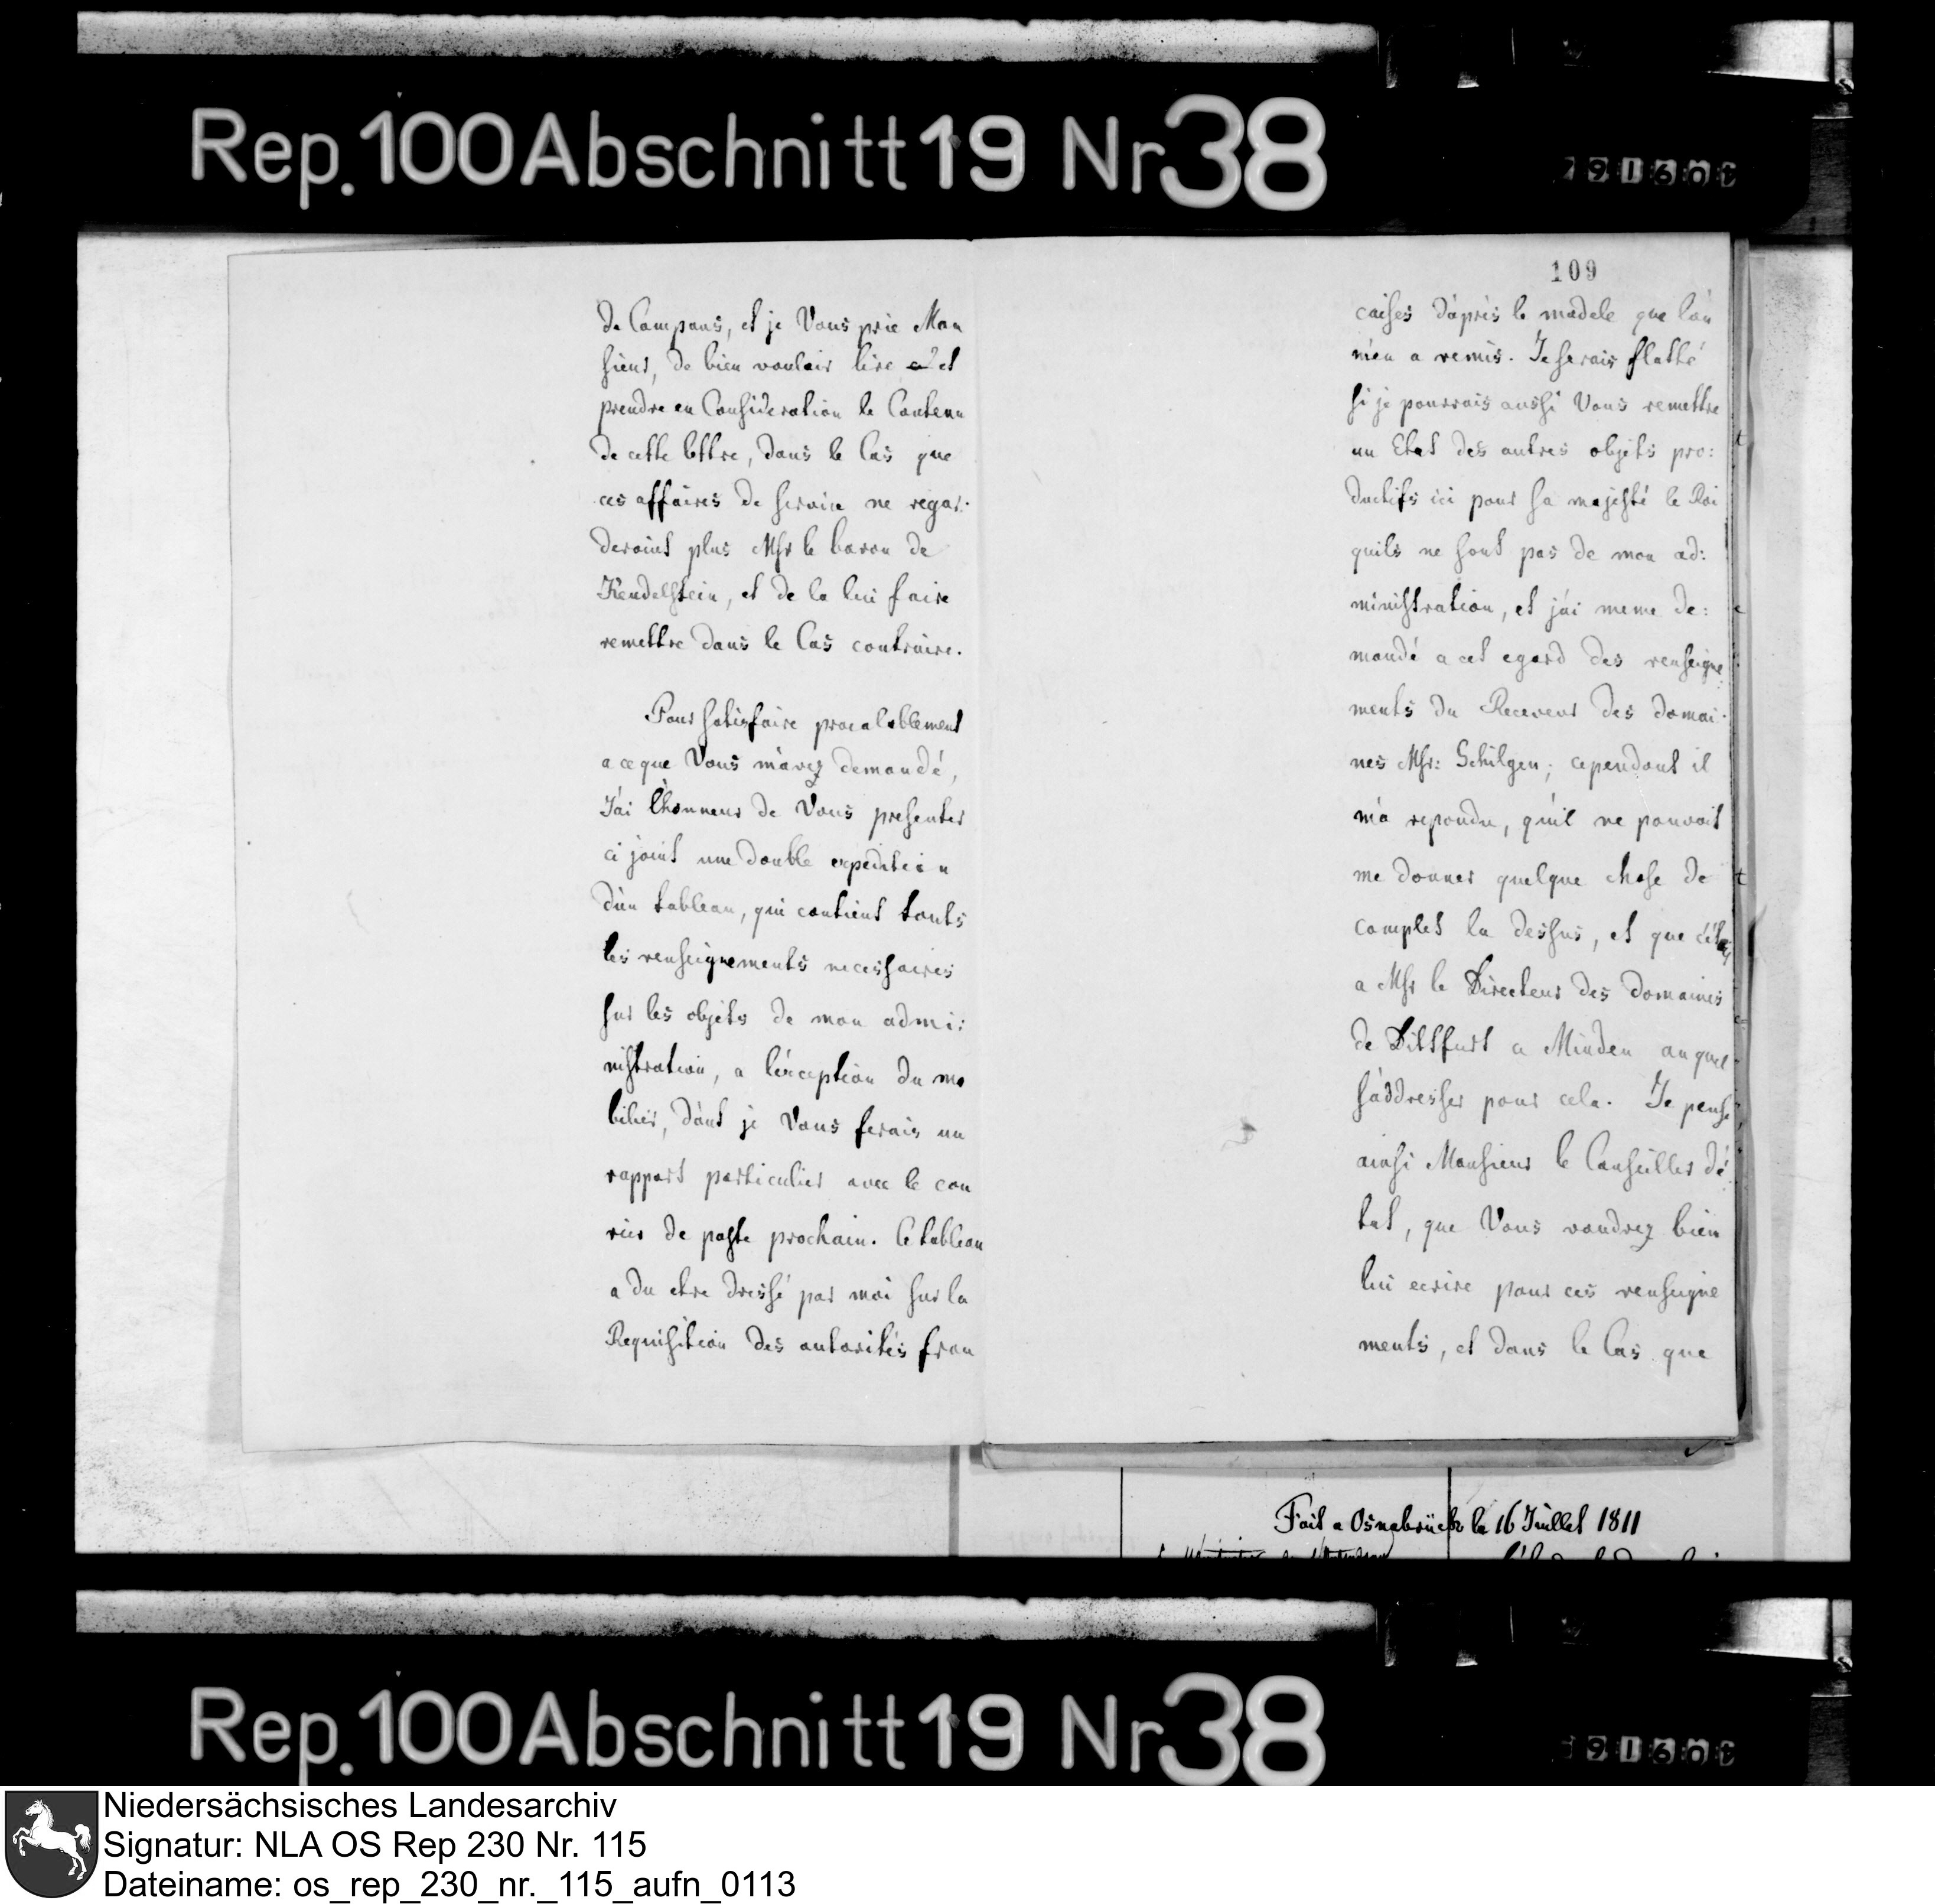 Rep. 100 Abschnitt 19 Nr 38
de Campans, et je Vous prie Mon
sieur, de bien vouloir lire et
prendre en Consideration le Contenu
de cette lettre, dans le Cas que
ces affaires de service ne regar:
deroint plus Msr le baron de
Kendelstein, et de la lui faire
remettre dans le Cas contraire.
Pour satisfaire prealablement
a ce que Vous m'avez demandé,
J'ai l'honneur de Vous presenter
ci joint une double expedition
d'un tableau, qui contient touts
les renseignements necessaires
sur les objets de mon admi:
nistration, a l'exception du mo
bilier, dont je Vous ferais un
rapport particulier avec le cou
rier de poste prochain. Ce tableau
a du etre dressé par moi sur la
Requisition des autorités fran
109
caises d'après le modele que l'on
m'en a remis. Je serais flatté
si je pourrais aussi Vous remettre
un Etat des autres objets pro:
ductifs ici pour sa majesté le Roi
quils ne sont pas de mon ad:
ministration, et j'ai meme de:
mandé a cet egard des renseigne
ments du Receveur des domai:
nes Msr: Schilgen; cependant il
m'a repondu, qu'il ne pouvoit
me donner quelque chose de
complet la dessus, et que c'étoit
a Msr le Directeur des domaines
de Dittfurt a Minden auquel
s'addresser pour cela. Je pense
ainsi Monsieur le Conseiller d'é
tat, que Vous voudrez bien
lui ecrire pour ces renseigne
ments, et dans le Cas que
Fait a Osnabrück le 16 Juillet 1811
Rep. 100 Abschnitt 19 Nr 38
Niedersächsisches Landesarchiv
Signatur: NLA OS Rep 230 Nr. 115
Dateiname: os_rep_230_nr._115_aufn_0113